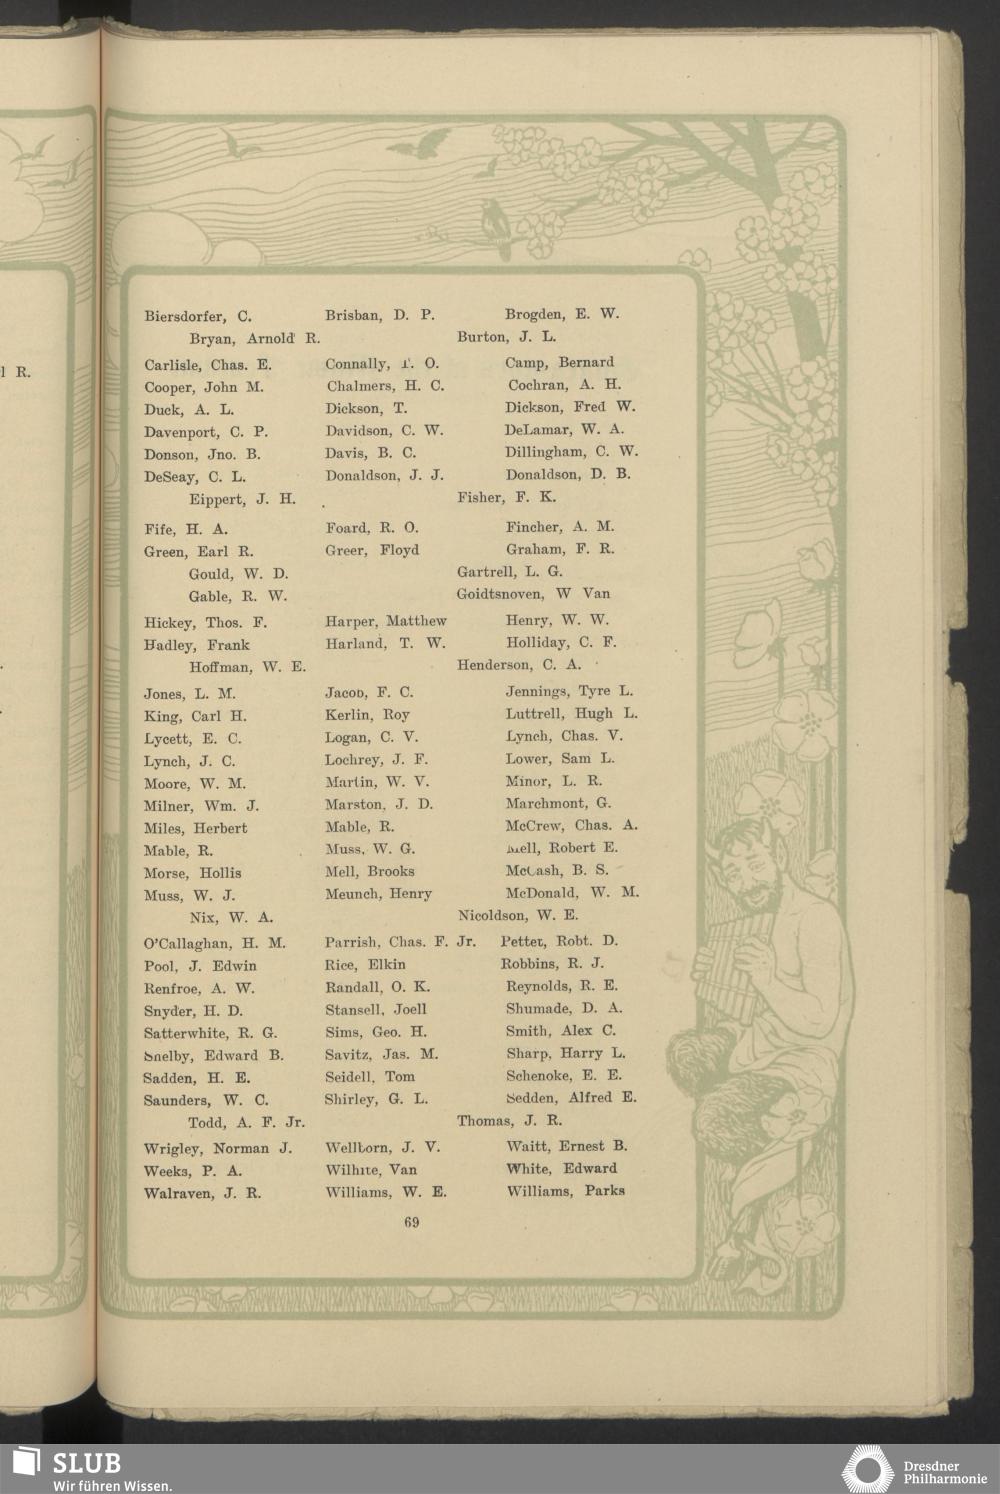 l R.
Biersdorfer, C. Brisban, D. P. Brogden, E. W.
Bryan, Arnold R. Burton, J. L.
Carlisle, Chas. E. Connally, T. O. Camp, Bernard
Cooper, John M. Chalmers, H. C. Cochran, A. H.
Duck, A. L. Dickson, T. Dickson, Fred W.
Davenport, C. P. Davidson, C. W. DeLamar, W. A.
Donson, Jno. B. Davis, B. C. Dillingham, C. W.
DeSeay, C. L. Donaldson, J. J. Donaldson, D. B.
Eippert, J. H. Fisher, F. K.
Fife, H. A. Foard, R. O. Fincher, A. M.
Green, Earl R. Greer, Floyd Graham, F. R.
Gould, W. D. Gartrell, L. G.
Gable, R. W. Goidtsnoven, W Van
Hickey, Thos. F. Harper, Matthew Henry, W. W.
Hadley, Frank Harland, T. W. Holliday, C. F.
Hoffman, W. E. Henderson, C. A.
Jones, L. M. Jacob, F. C. Jennings, Tyre L.
King, Carl H. Kerlin, Roy Luttrell, Hugh L.
Lycett, E. C. Logan, C. V. Lynch, Chas. V.
Lynch, J. C. Lochrey, J. F. Lower, Sam L.
Moore, W. M. Martin, W. V. Minor, L. R.
Milner, Wm. J. Marston, J. D. Marchmont, G.
Miles, Herbert Mable, R. McCrew, Chas. A.
Mable, R. Muss, W. G. Mell, Robert E.
Morse, Hollis Mell, Brooks McCash, B. S.
Muss, W. J. Meunch, Henry McDonald, W. M.
Nix, W. A. Nicoldson, W. E.
O'Callaghan, H. M. Parrish, Chas. F. Jr. Petter, Robt. D.
Pool, J. Edwin Rice, Elkin Robbins, R. J.
Renfroe, A. W. Randall, O. K. Reynolds, R. E.
Snyder, H. D. Stansell, Joell Shumade, D. A.
Satterwhite, R. G. Sims, Geo. H. Smith, Alex C.
Snelby, Edward B. Savitz, Jas. M. Sharp, Harry L.
Sadden, H. E. Seidell, Tom Schenoke, E. E.
Saunders, W. C. Shirley, G. L. Sedden, Alfred E.
Todd, A. F. Jr. Thomas, J. R.
Wrigley, Norman J. Wellborn, J. V. Waitt, Ernest B.
Weeks, P. A. Wilhite, Van White, Edward
Walraven, J. R. Williams, W. E. Williams, Parks
69
SLUB
Wir führen Wissen.
Dresdner
Philharmonie